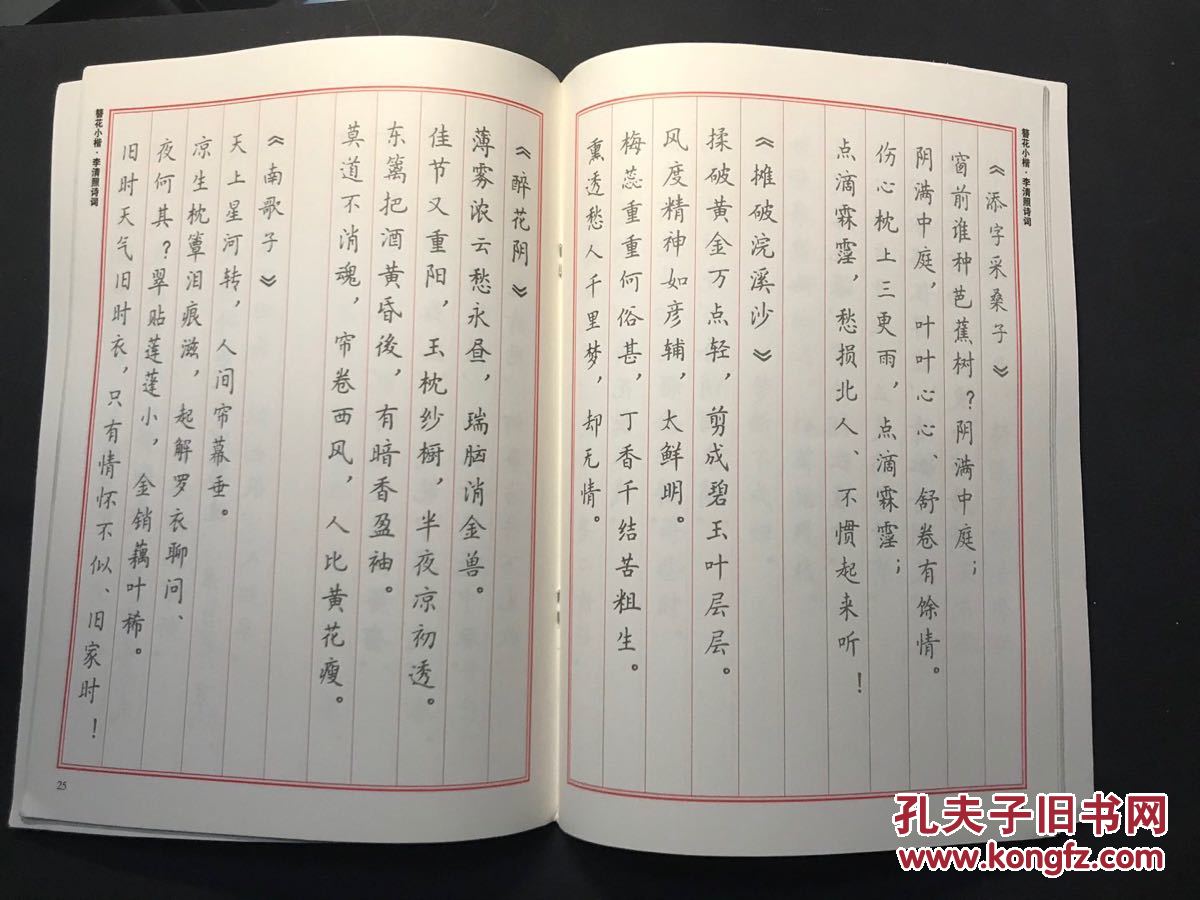 簪花小楷·李清照诗词
《添字采桑子》
窗前谁种芭蕉树？阴满中庭；
阴满中庭，叶叶心心、舒卷有馀情。
伤心枕上三更雨，点滴霖霪；
点滴霖霪，愁损北人、不惯起来听！
《摊破浣溪沙》
揉破黄金万点轻，剪成碧玉叶层层。
风度精神如彦辅，太鲜明。
梅蕊重重何俗甚，丁香千结苦粗生。
熏透愁人千里梦，却无情。
《醉花阴》
薄雾浓云愁永昼，瑞脑消金兽。
佳节又重阳，玉枕纱橱，半夜凉初透。
东篱把酒黄昏後，有暗香盈袖。
莫道不消魂，帘卷西风，人比黄花瘦。
《南歌子》
天上星河转，人间帘幕垂。
凉生枕簟泪痕滋，起解罗衣聊问、
夜何其？翠贴莲蓬小，金销藕叶稀。
旧时天气旧时衣，只有情怀不似、旧家时！
簪花小楷·李清照诗词
25
孔夫子旧书网
www.kongfz.com